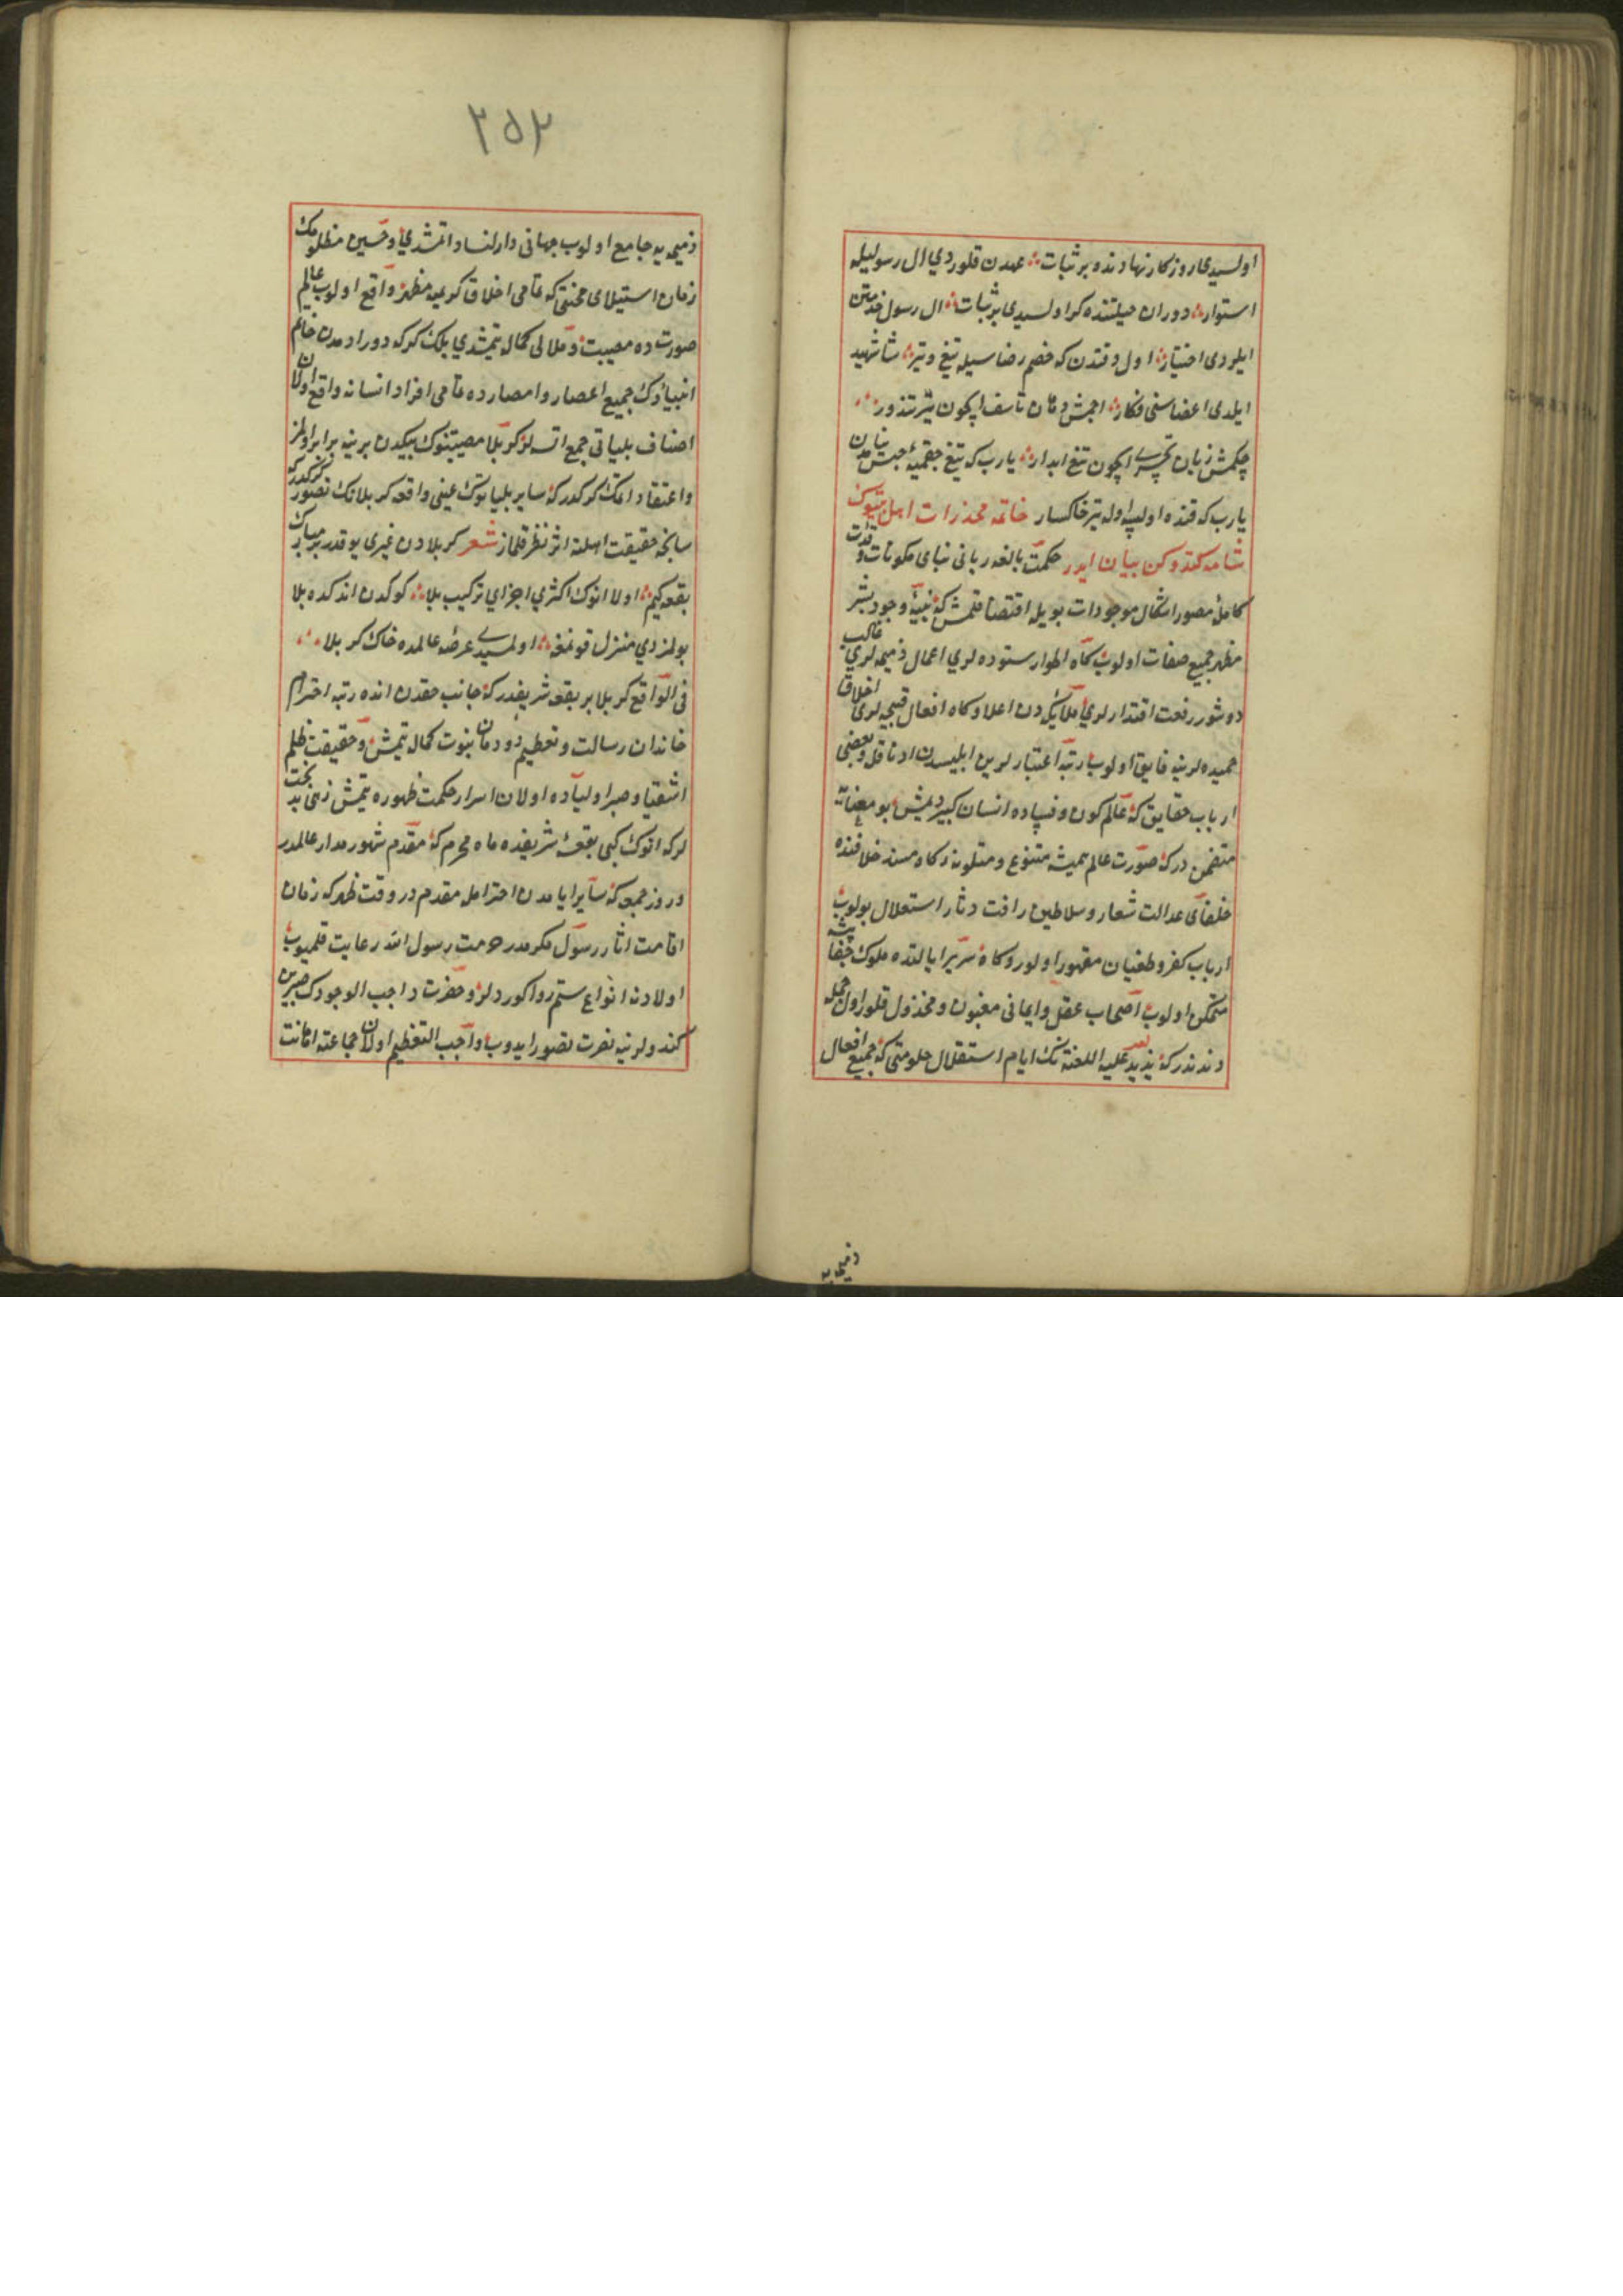 اولسيدی روزكار نهادنده بر ثبات عهدن قلوردي ال رسوليله
استوار دوران حيلتنده كر اولسيدی بر ثبات ال رسول خدمتن
ايلردی اختيار اول وقتدن كه خصم رضاسيله تيغ و تير شاه شهيد
ايلدی اعضاسنی فكار اچمش دهان تاسف ايچون تير تندور
چكمش زبان تحسر ايچون تيغ ابدار يا رب كه تيغ چقميه حبس نيامدن
يا رب كه قنده اولسه اوله تير خاكسار خاتمه مخدرات اهل بيتوك
شامه كتدوكن بيان ايدر حكمت بالغه ربانی بنای مكونات و قدرت
كامله مصور اشكال موجودات بويله اقتضا قلمش كه بنيه وجود بشر
مظهر جميع صفات اولوب كاه اطوار ستوده لري اعمال ذميمه لري غالب
دوشور رفعت اقتدارلري ملايكدن اعلا و كاه افعال قبيحه لری اخلاق
حميده لرينه فايق اولوب رتبه اعتبارلرين ابليسدن ادنا قلور بعضی
ارباب حقايق كه عالم كون و فساده انسان كبير ديمش بو معنايه
متضمن دركه صورت عالم هميشه متنوع و متلوندر كاه مسند خلافتده
خلفای عدالت شعار و سلاطين رافت دثار استعلال بولوب
ارباب كفر و طغيان مقهور اولور و كاه سرير ايالتده ملوك جفا پيشه
متمكن اولوب اصحاب عقل و ايمانی مغبون و مخذول قلور اول جمله
دندندر كه يزيد عليه اللعنة نك ايام استقلال حكومتی كه جميع افعال
ذميمه يه
٢٥٣
ذميمه يه جامع اولوب جهانی دار الفساد اتمشدي و حسين مظلومك
زمان استيلای محنتی كه تمامی اخلاق كريمه مظهر واقع اولوب عالم
صورتده مصيبت و ملالی كمال يتمشدي بلمك كرك كه دور ادمدن خاتم
انبيادك جميع اعصار و امصارده تمامی افراد انسانه واقع اولان
اصناف بلياتی جمع اتسه لر كربلا مصيبتنوك بيكدن برينه برابر اولمز
و اعتقاد اتمك كركدر كه ساير بلياتوك عينی واقعه كربلانك تصور كركدر كه
سانحه حقيقت اهلنه اثر نظر قلماز شعر كربلادن غيری يوقدر بر مبارك
بقعه كيم اولا انوك اكثري اجزاي تركيب بلا كوكدن اندكده بلا
بولمزدي منزل قونمغه اولمسيدے عرصه عالمده خاك كربلا
فی الواقع كربلا بر بقعه شريفدر كه جانب حقدن انده رتبه احترام
خاندان رسالت و تعظيم دودمان نبوت كمال يتمش و حقيقت ظلم
اشقيا و صبر اولياده اولان اسرار حكمت ظهوره يتمش زهی بد بخت
لركه انوك كبی بقعه شريفده ماه محرم كه مقدم شهور مدار عالمدر
و روز جمعه كه ساير ايامدن احتراملو مقدم در و وقت ظهر كه زمان
اقامت اثار رسول مكرمدر حرمت رسول الله رعايت قلميوب
اولادنه انواع ستم روا كوردلر و حضرت واجب الوجودك صبرين
كندولرينه نصرت تصور ايدوب واجب التعظيم اولان جماعته اهانت